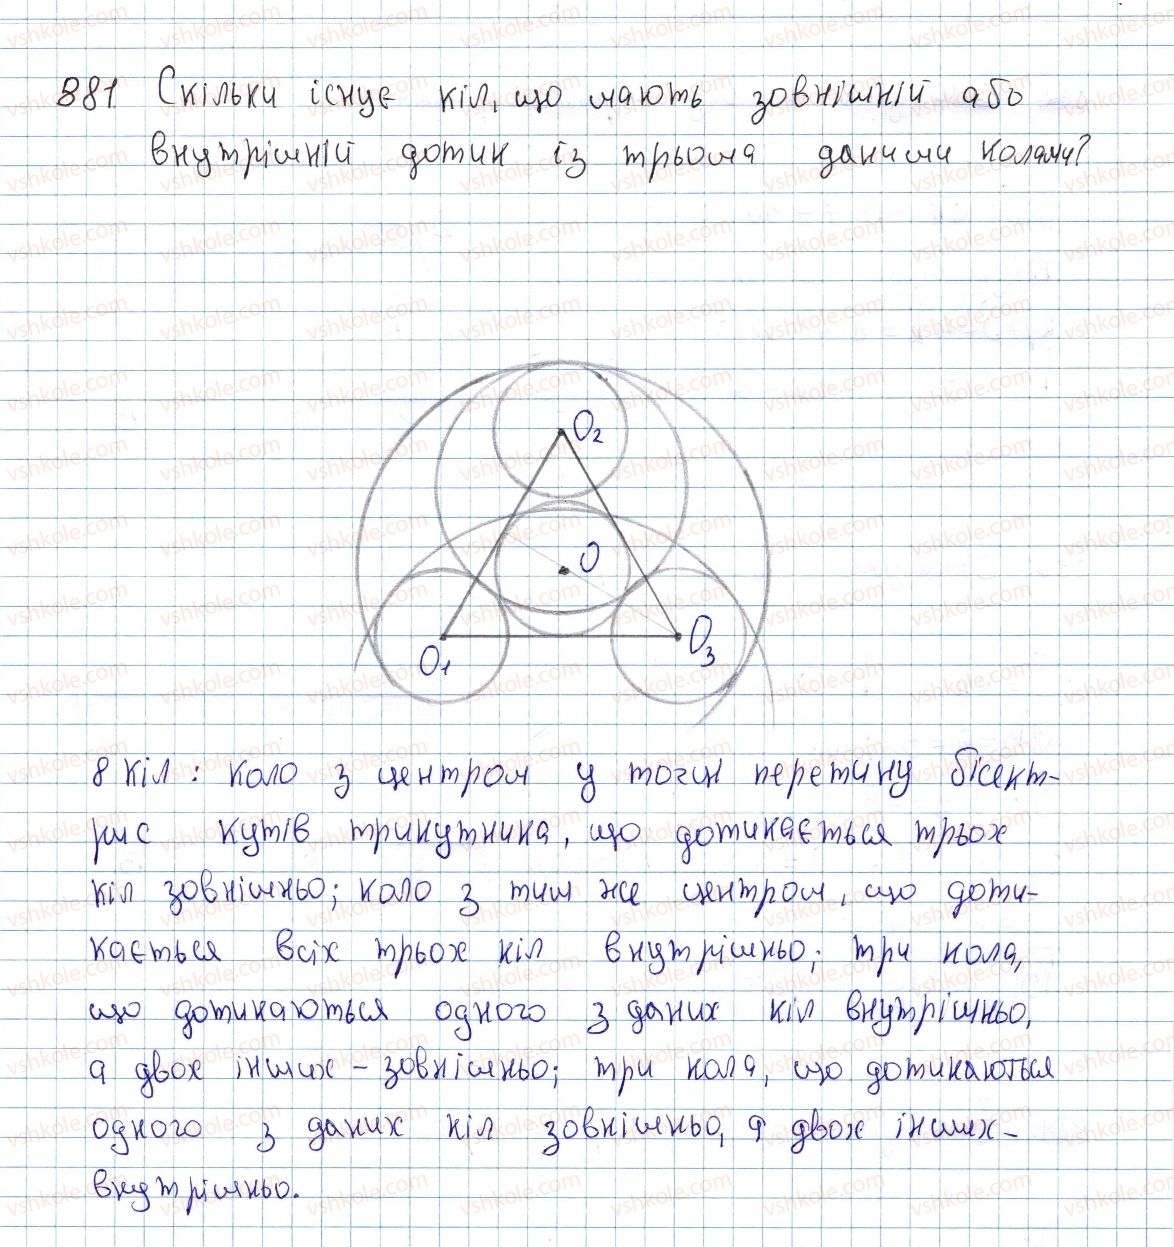 881 Скільки існує кіл, що мають зовнішній або
внутрішній дотик із трьома даними колами?
O₂
O
O₁
O₃
8 кіл: коло з центром у точці перетину бісект-
рис кутів трикутника, що дотикається трьох
кіл зовнішньо; коло з тим же центром, що доти-
кається всіх трьох кіл внутрішньо; три кола,
що дотикаються одного з даних кіл внутрішньо,
а двох інших - зовнішньо; три кола, що дотикаються
одного з даних кіл зовнішньо, а двох інших -
внутрішньо.